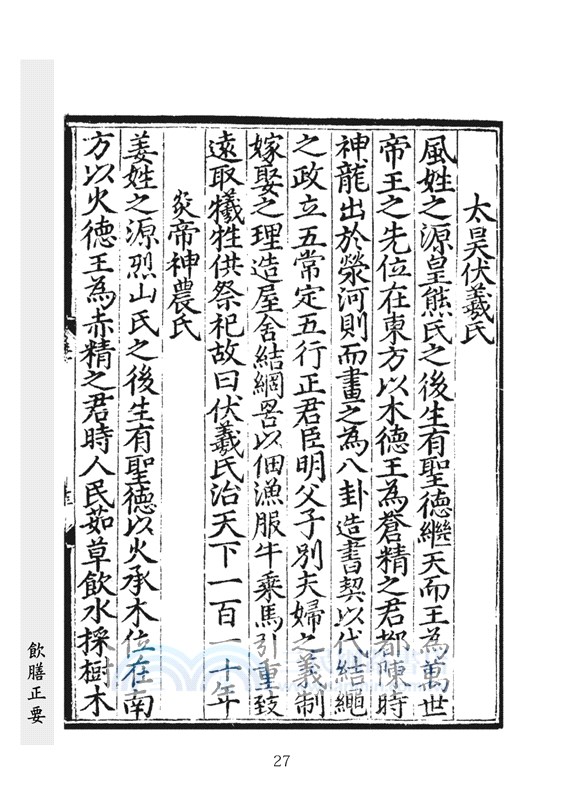 太昊伏羲氏
風姓之源皇熊氏之後生有聖德繼天而王為萬世
帝王之先位在東方以木德王為蒼精之君都陳時
神龍出於滎河則而畫之為八卦造書契以代結繩
之政立五常定五行正君臣明父子別夫婦之義制
嫁娶之理造屋舍結網罟以佃漁服牛乘馬引重致
遠取犧牲供祭祀故曰伏羲氏治天下一百一十年
炎帝神農氏
姜姓之源烈山氏之後生有聖德以火承木位在南
方以火德王為赤精之君時人民茹草飲水採樹木
飲膳正要
27